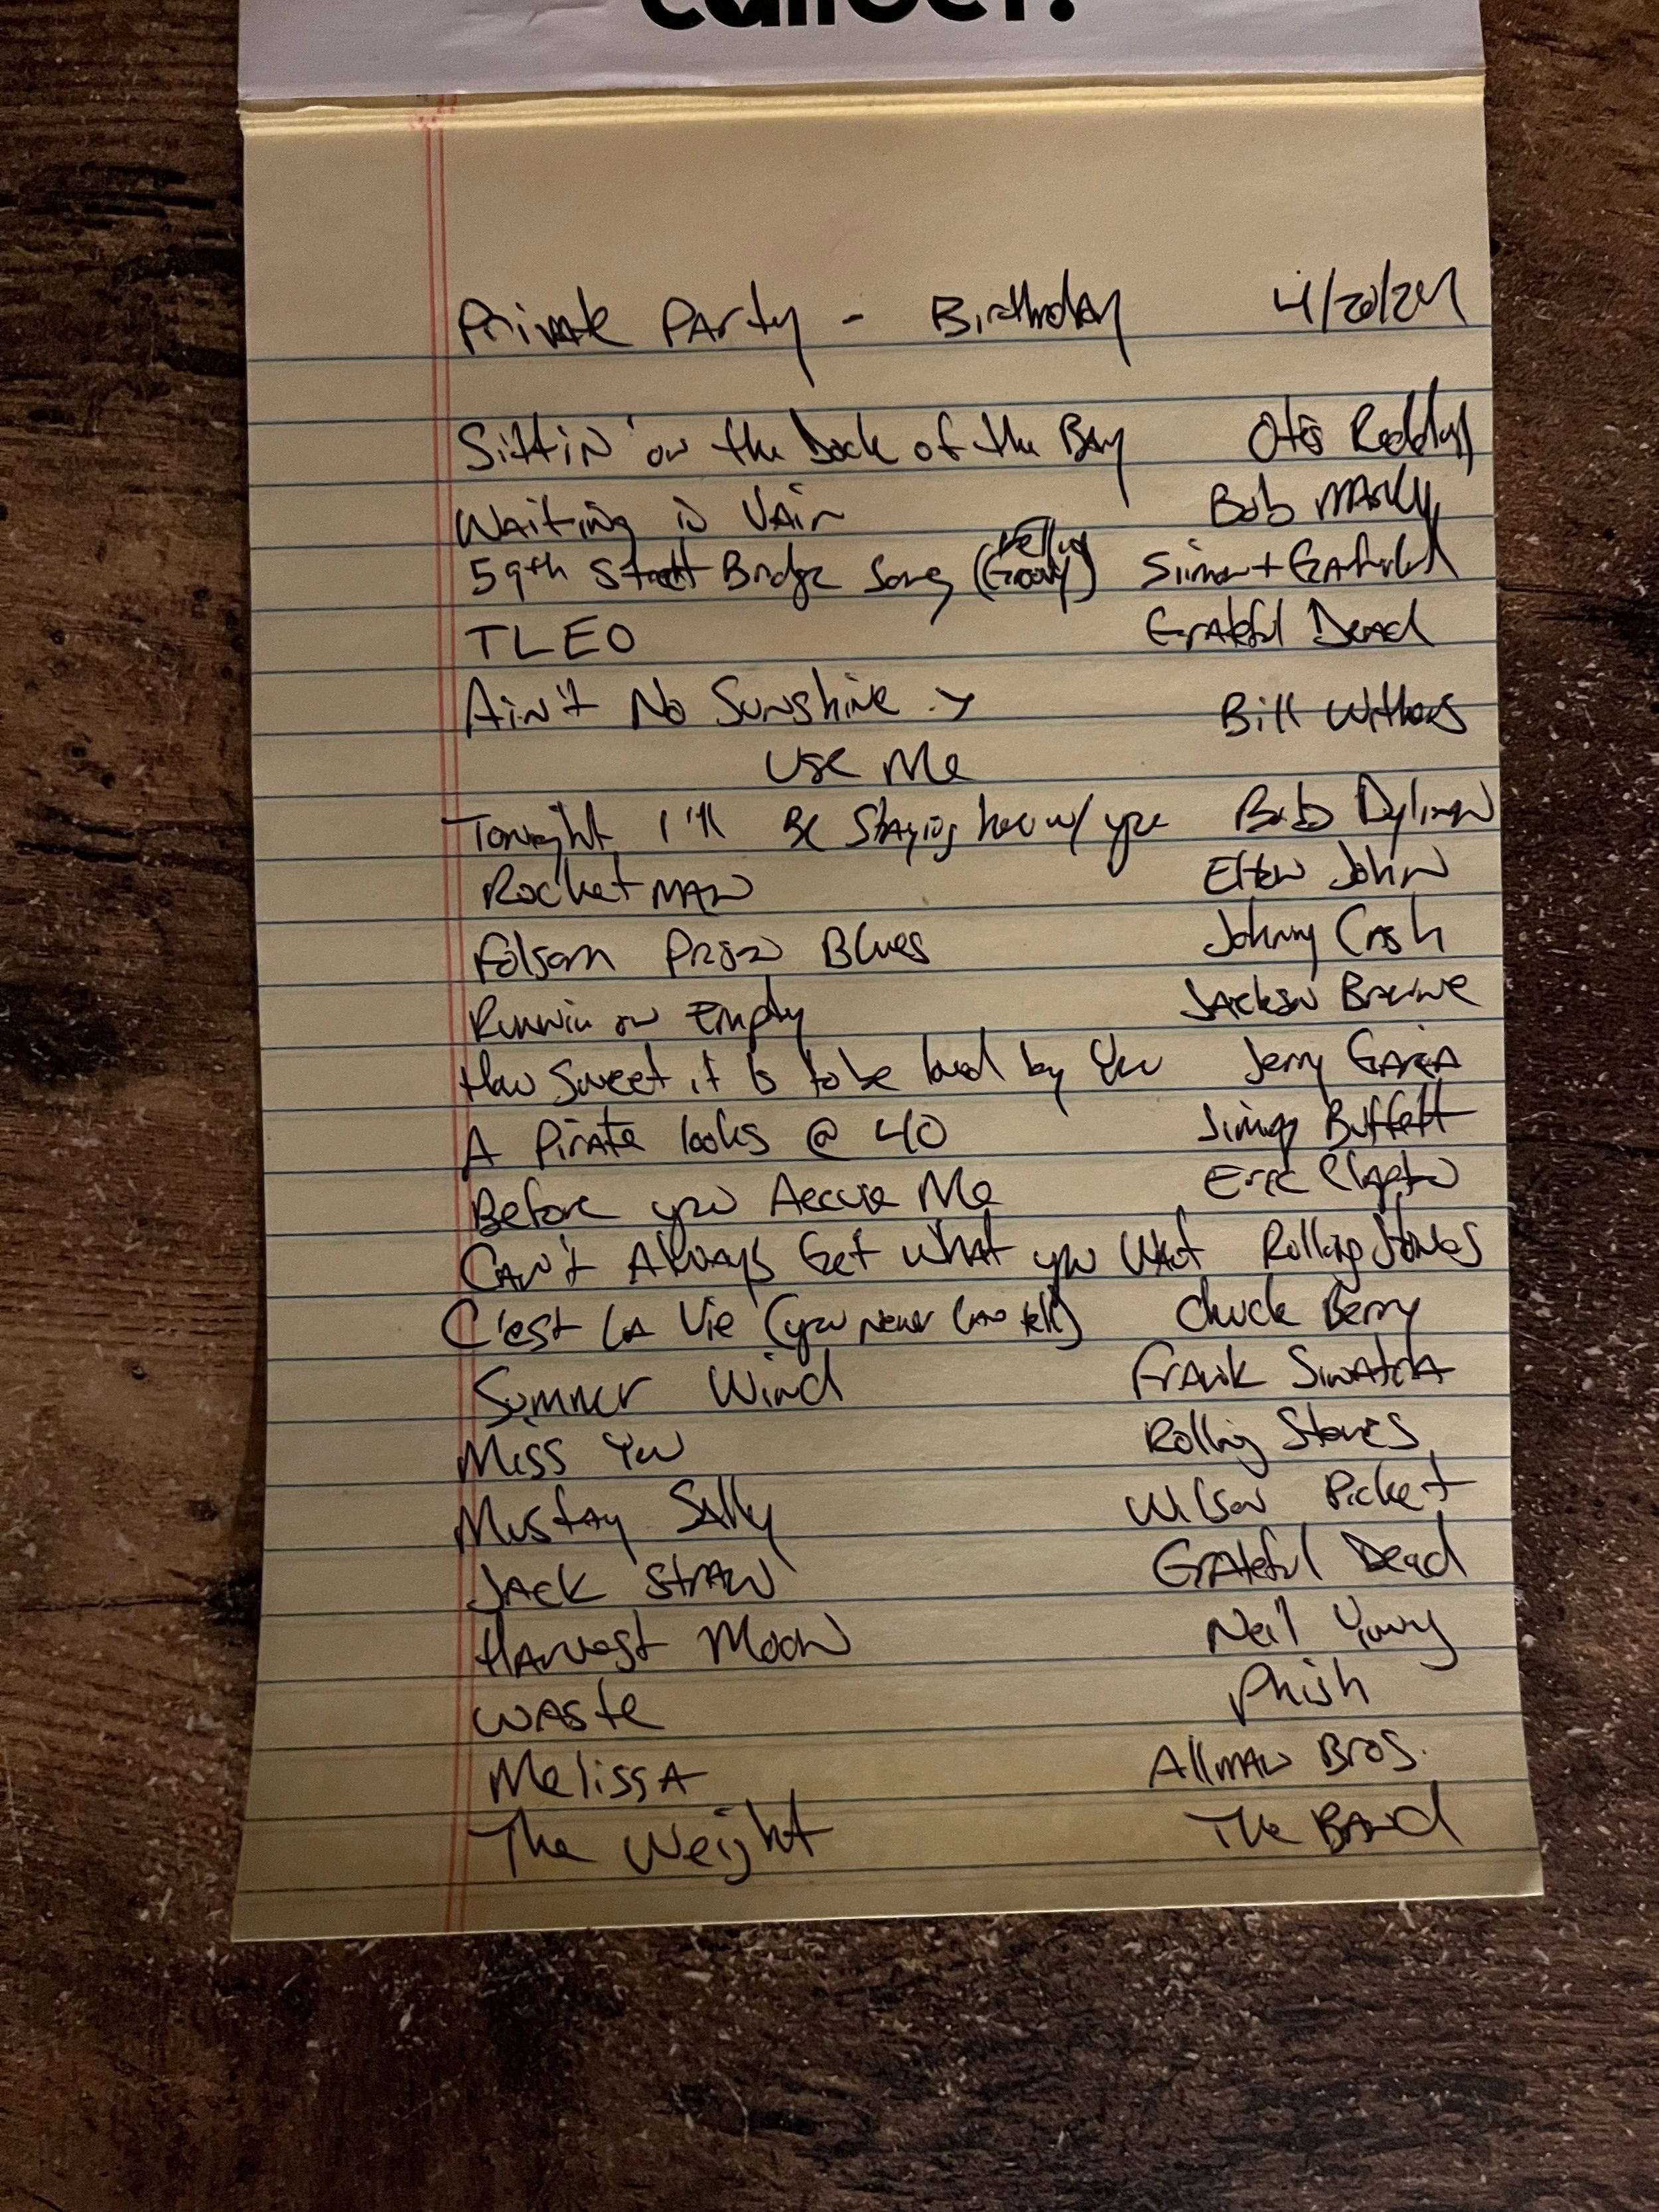 Private Party - Birthday 4/20/24
Sittin' on the Dock of the Bay Otis Redding
Waiting in Vain Bob Marley
59th Street Bridge Song (Feelin Groovy) Simon + Garfunkel
TLEO Grateful Dead
Ain't No Sunshine > Bill Withers
Use Me
Tonight I'll Be Staying here w/ you Bob Dylan
Rocket Man Elton John
Folsom Prison Blues Johnny Cash
Runnin on Empty Jackson Browne
How Sweet it Is to be loved by You Jerry Garcia
A Pirate looks @ 40 Jimmy Buffett
Before you Accuse Me Eric Clapton
Can't Always Get What you Want Rolling Stones
C'est La Vie (you never can tell) Chuck Berry
Summer Wind Frank Sinatra
Miss You Rolling Stones
Mustang Sally Wilson Picket
Jack Straw Grateful Dead
Harvest Moon Neil Young
Waste Phish
Melissa Allman Bros.
The Weight The Band